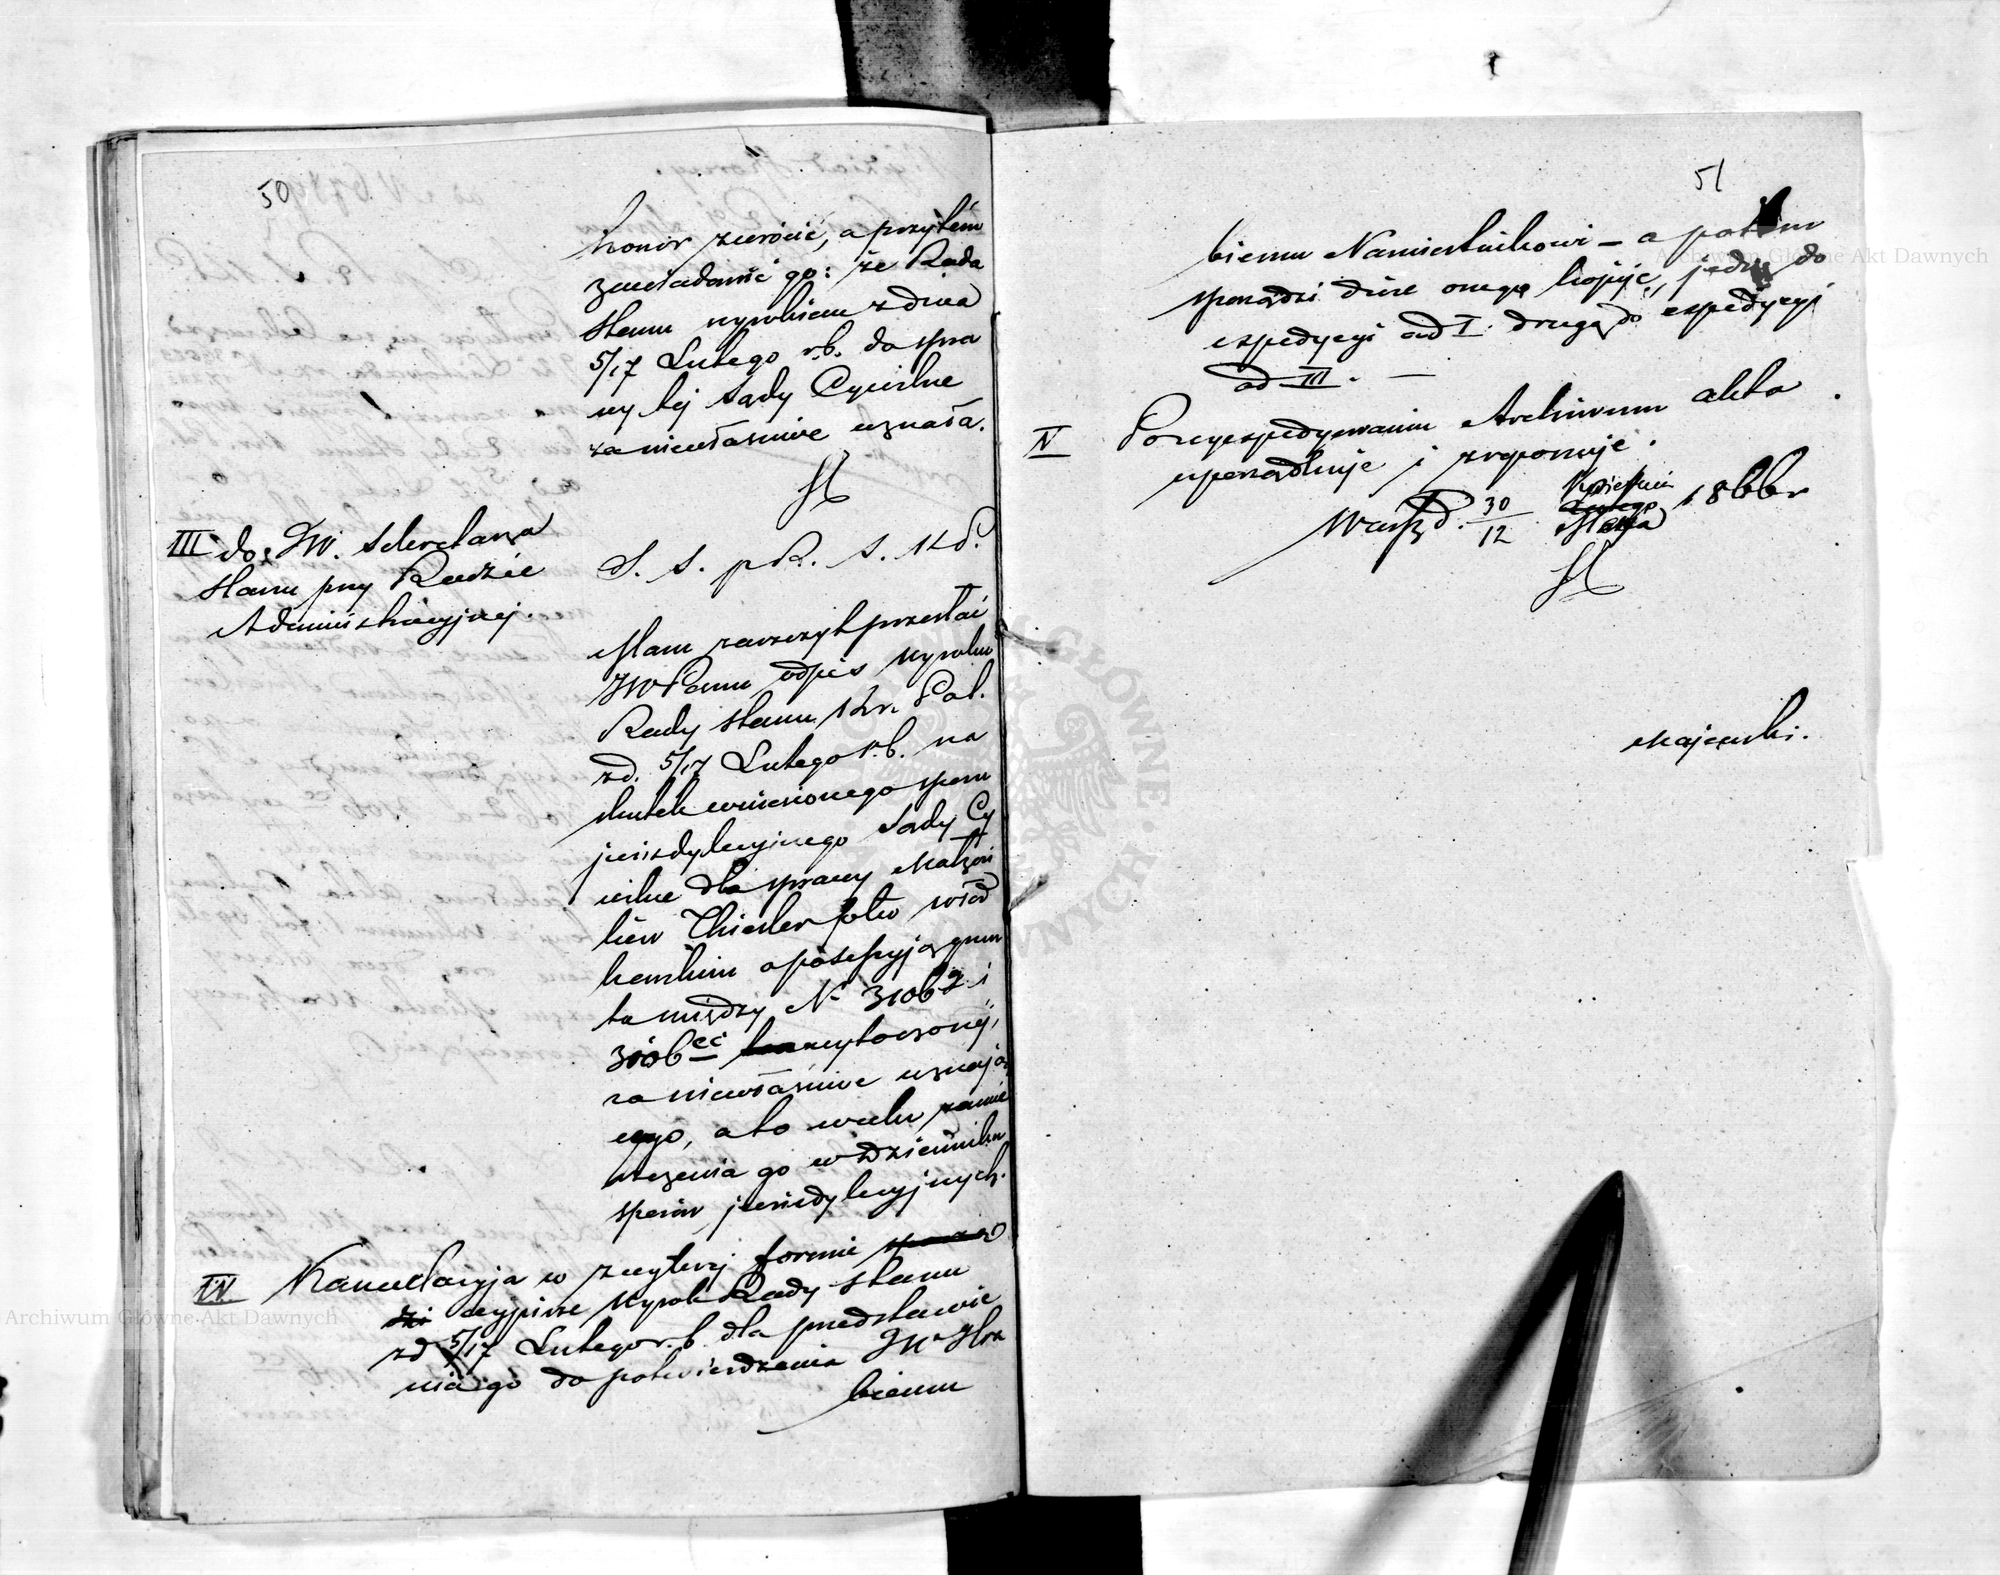 50
honor zwrócić, a przytém
zawiadomić go: że Rada
Stanu wyrokiem z dnia
5/17 Lutego r.b. do spra
wy tej Sądy Cywilne
za niewłaściwe uznała.
III do JW. Sekretarza
Stanu przy Radzie
Administracyjnej.
S. S. p R. S. Kr.
Mam zaszczyt przesłać
JWPanu odpis wyroku
Rady Stanu Kr. Pol.
z d. 5/17 Lutego r.b. na
skutek wzniesionego sporu
jurisdykcyjnego Sądy Cy
wilne dla sprawy Małżon
ków Thiesler fotw włod
kowskim o possessyją grun
tu między N 3106 2 i
3106 ec wytoczonej,
za niewłaściwe uznają
cego, a to w celu zamie
szczenia go w dzienniku
sporów jurisdykcyjnych.
IV Kancellaryja w zwykłej formie
wypisze wyrok Rady Stanu
z d 5/17 Lutego r.b. dla przedstawie
nia go do potwierdzenia JW Hra
biemu
51
biemu Namiestnikowi – a potem
sporządzi dwie onego kopije, jedną do
expedycyi ad I. drugą do expedycyi
ad III. —
V Po wyexpedyowaniu Archiwum akta
uporządkuje i zreponuje.
Warsz d. 30/12 Kwietnia Maja 1866 r
Majewski.
Archiwum Główne Akt Dawnych
Archiwum Główne Akt Dawnych